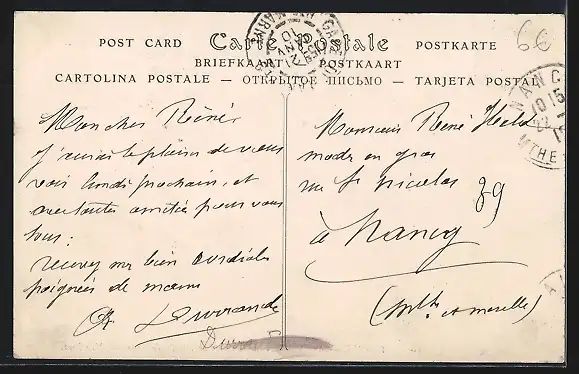 66
POST CARD Carte Postale POSTKARTE
BRIEFKAART POSTKAART
CARTOLINA POSTALE — ОТКРЫТОЕ ПИСЬМО — TARJETA POSTAL
Mon cher René
J'aurai le plaisir de vous
voir lundi prochain, et
avec toutes amitiés pour vous
tous:
recevez mes bien cordiales
poignées de mains
Durrande
Monsieur René
mode en gros
rue St Nicolas 39
à Nancy
(Mthe et Moselle)